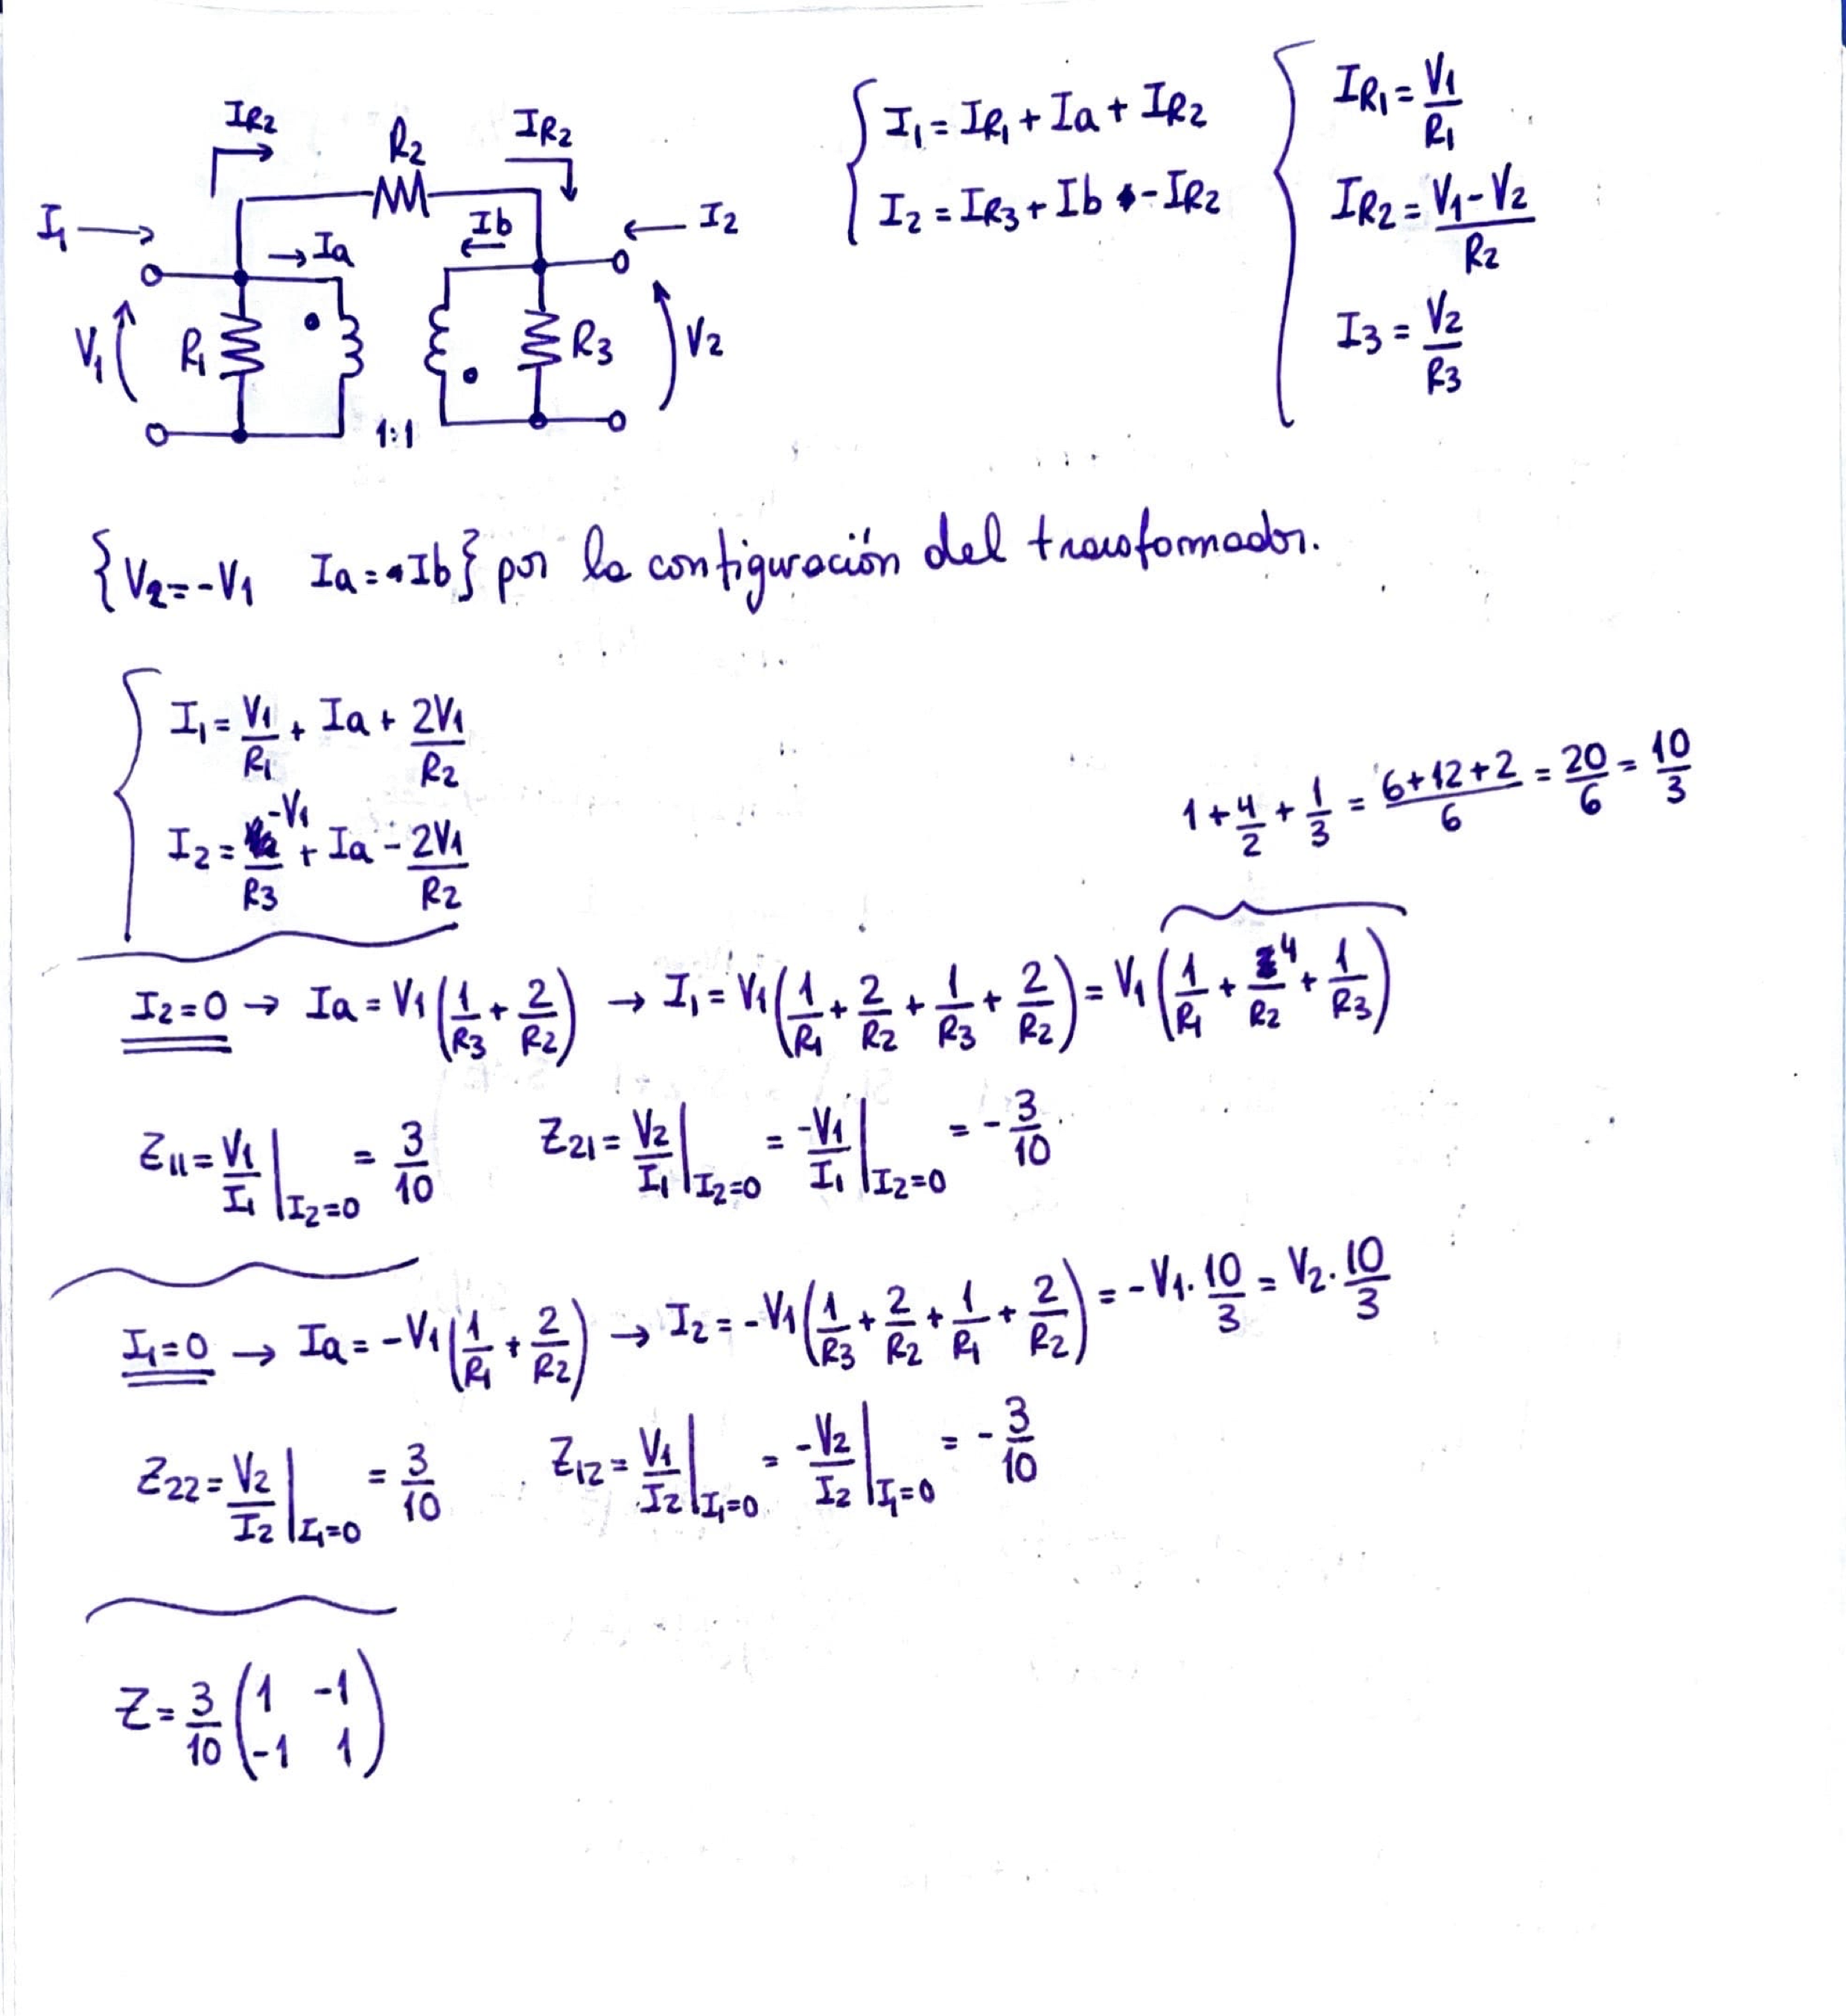 IR2
R2
IR2
I1
Ia
Ib
I2
V1
R1
R3
V2
1:1
I1 = IR1 + Ia + IR2
I2 = IR3 + Ib - IR2
IR1 = V1/R1
IR2 = (V1-V2)/R2
I3 = V2/R3
{V2=-V1 Ia=Ib} por la configuración del transformador.
I1 = V1/R1 + Ia + 2V1/R2
I2 = -V1/R3 + Ia - 2V1/R2
1 + 4/2 + 1/3 = (6+12+2)/6 = 20/6 = 10/3
I2=0 → Ia = V1(1/R3 + 2/R2) → I1 = V1(1/R1 + 2/R2 + 1/R3 + 2/R2) = V1(1/R1 + 4/R2 + 1/R3)
Z11 = V1/I1 |I2=0 = 3/10 Z21 = V2/I1 |I2=0 = -V1/I1 |I2=0 = -3/10
I1=0 → Ia = -V1(1/R1 + 2/R2) → I2 = -V1(1/R3 + 2/R2 + 1/R1 + 2/R2) = -V1·10/3 = V2·10/3
Z22 = V2/I2 |I1=0 = 3/10 Z12 = V1/I2 |I1=0 = -V2/I2 |I1=0 = -3/10
Z = 3/10 (1 -1
-1 1)